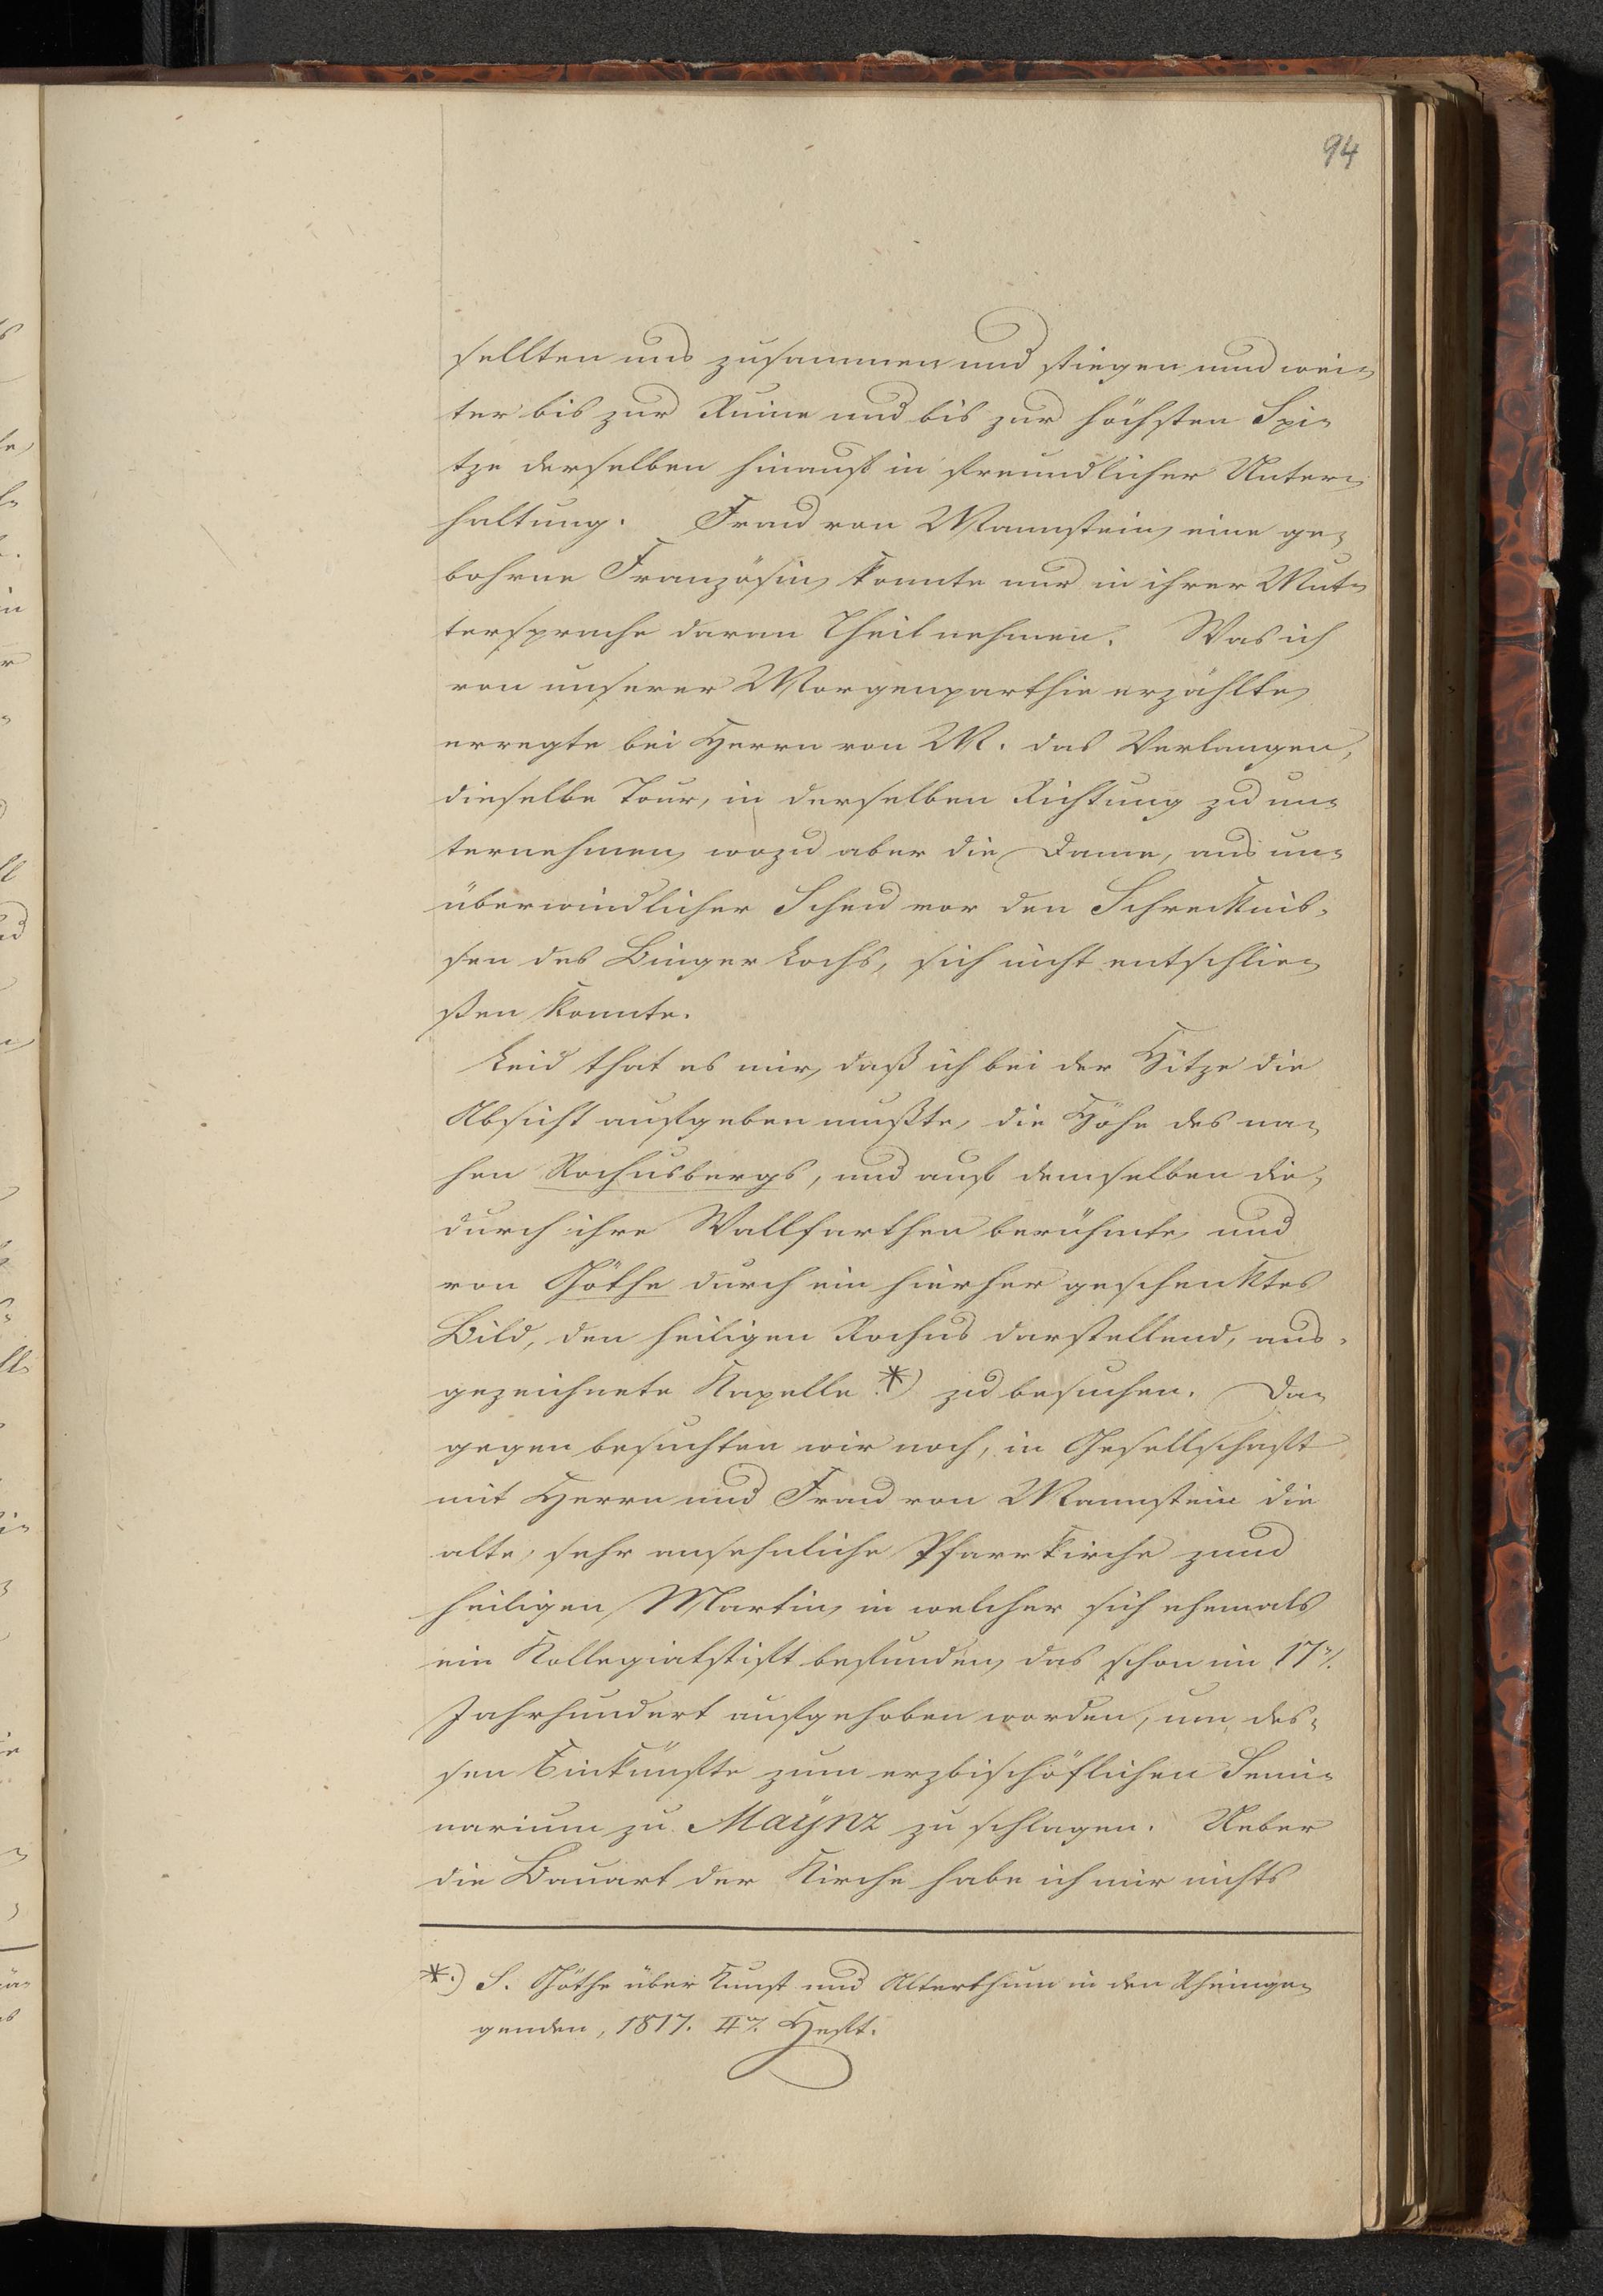 94
sellten uns zusammen und stiegen nun wei-
ter bis zur Ruine und bis zur höchsten Spi-
tze derselben hinauf in freundlicher Unter-
haltung. Frau von Mannstein, eine ge-
bohrne Französin, konnte nur in ihrer Mut-
tersprache daran Theil nehmen. Was ich
von unserer Morgenparthie erzählte,
erregte bei Herrn von M. das Verlangen,
dieselbe Tour, in derselben Richtung zu un-
ternehmen, wozu aber die Dame, aus un-
überwindlicher Scheu vor den Schrecknis-
sen des Binger Lochs, sich nicht entschlie-
ßen konnte.
Leid that es mir, daß ich bei der Hitze die
Absicht aufgeben mußte, die Höhe des na-
hen Rochusbergs, und auf demselben die,
durch ihre Wallfarthen berühmte, und
von Göthe durch ein hierher geschenktes
Bild, den heiligen Rochus darstellend, aus-
gezeichnete Kapelle *) zu besuchen. Da-
gegen besuchten wir noch, in Gesellschaft
mit Herrn und Frau von Mannstein die
alte, sehr ansehnliche Pfarrkirche zum
heiligen Martin, in welcher sich ehemals
ein Kollegiatstift befunden, das schon im 17n.
Jahrhundert aufgehoben worden, um des-
sen Einkünfte zum erzbischöflichen Semi-
narium zu Maÿnz zu schlagen. Ueber
die Bauart der Kirche habe ich mir nichts
*.) S. Göthe über Kunst und Alterthum in den Rheinge-
genden, 1817. IIs. Heft.